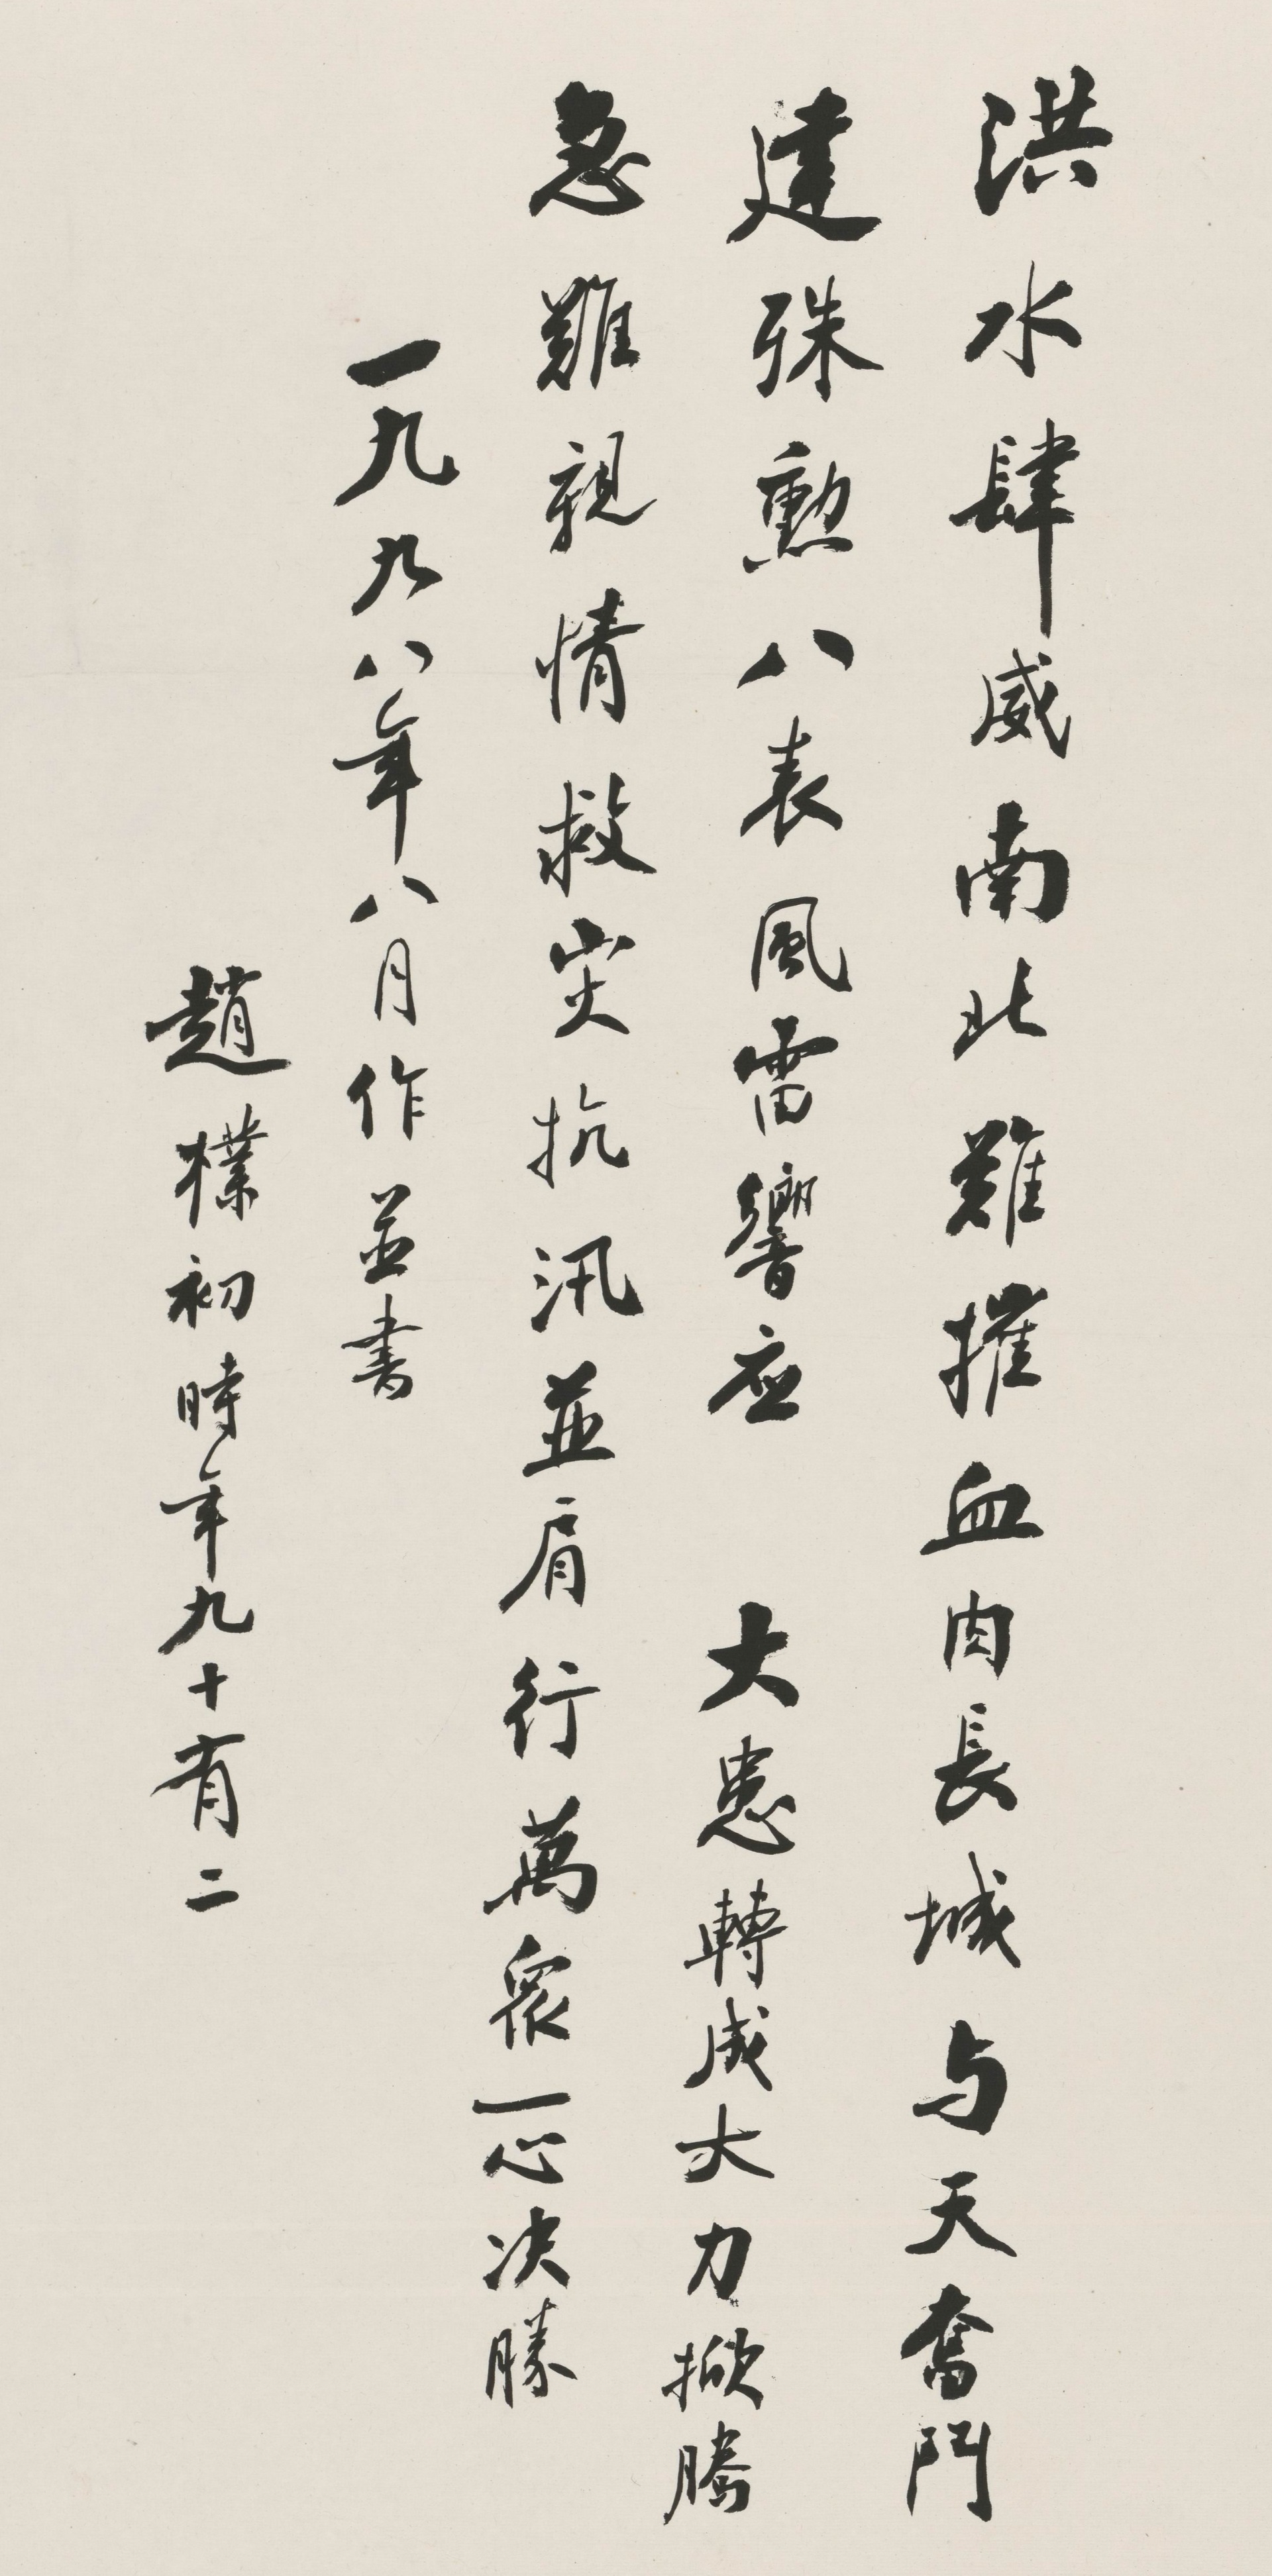 洪水肆威南北難摧血肉長城与天奮鬥
建殊勲八表風雷響应　大患轉成大力掀騰
急難親情救灾抗汛並肩行萬眾一心决勝
一九九八年八月作並書
趙樸初時年九十有二